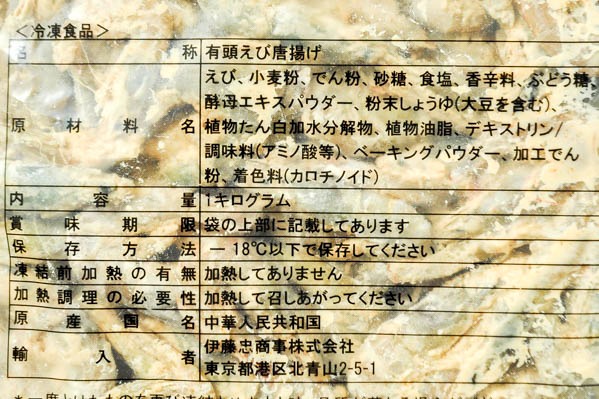 <冷凍食品>
名称 有頭えび唐揚げ
えび、小麦粉、でん粉、砂糖、食塩、香辛料、ぶどう糖、
酵母エキスパウダー、粉末しょうゆ(大豆を含む)、
原材料名 植物たん白加水分解物、植物油脂、デキストリン/
調味料(アミノ酸等)、ベーキングパウダー、加工でん
粉、着色料(カロチノイド)
内容量 1キログラム
賞味期限 袋の上部に記載してあります
保存方法 －18℃以下で保存してください
凍結前加熱の有無 加熱してありません
加熱調理の必要性 加熱して召しあがってください
原産国名 中華人民共和国
輸入者 伊藤忠商事株式会社
東京都港区北青山2-5-1